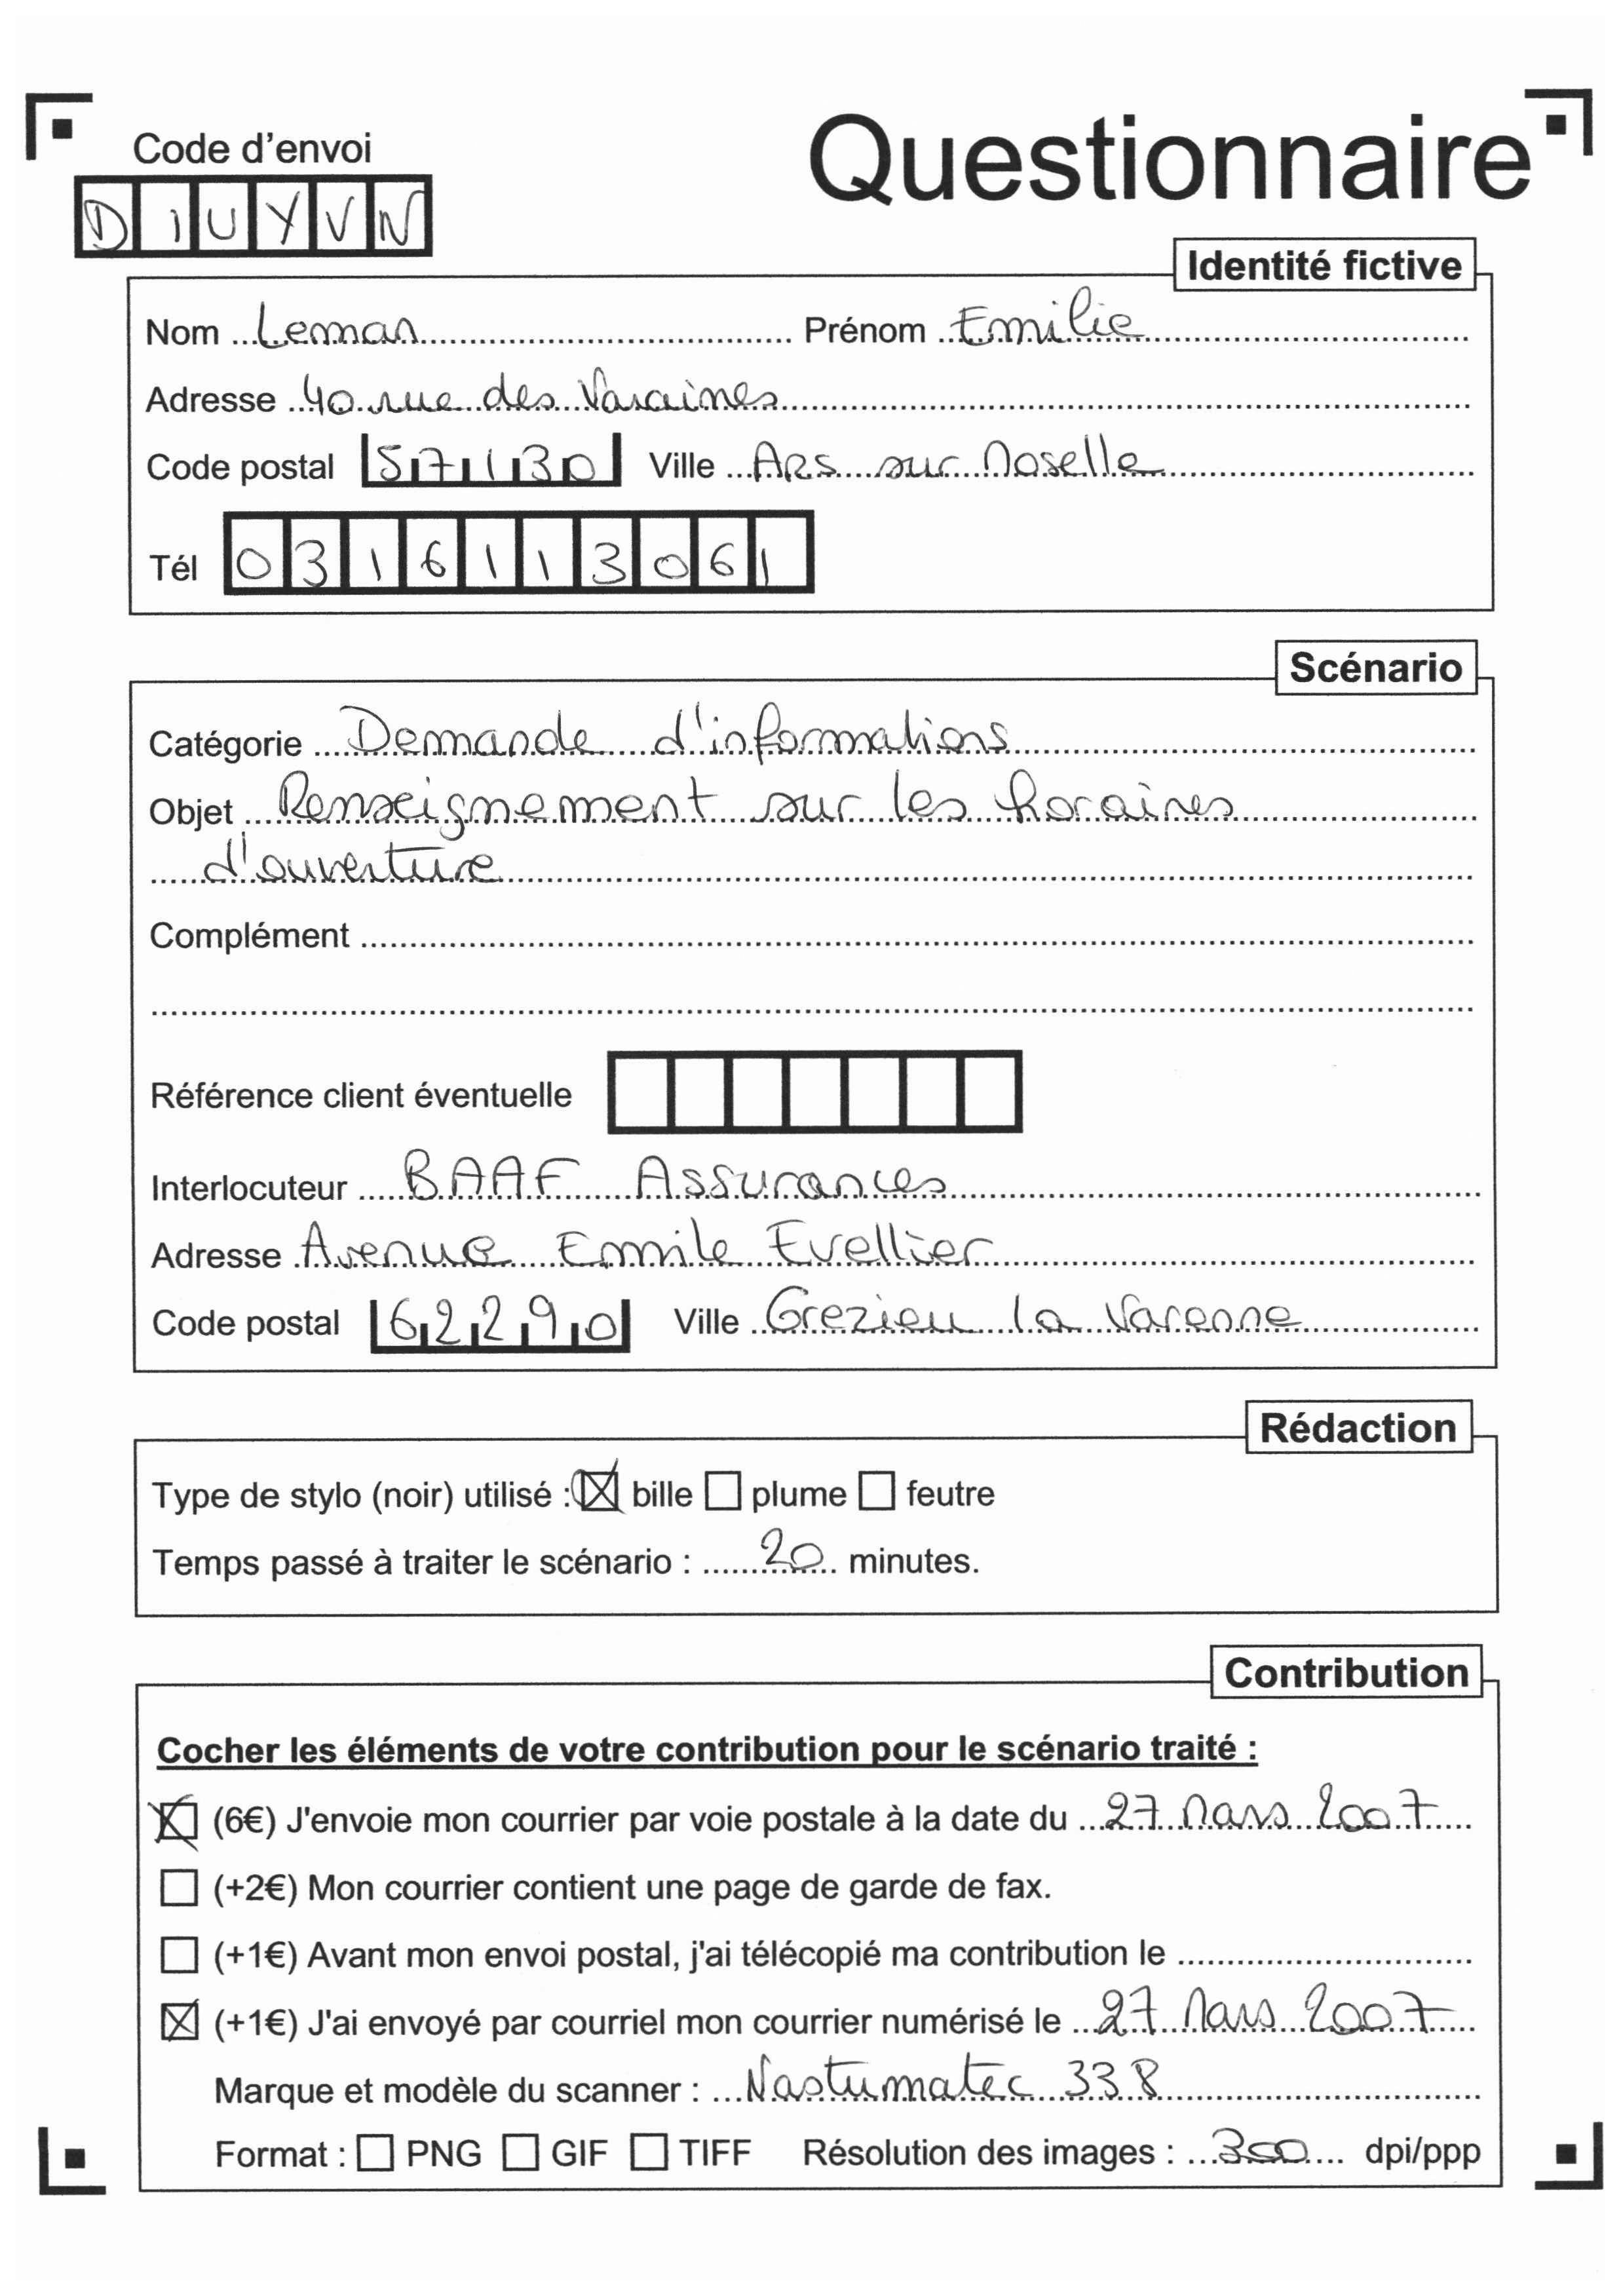 Questionnaire
Code d'envoi
DIUYVN
Identité fictive
Nom Leman Prénom Emilie
Adresse 40 rue des Varaines
Code postal 57130 Ville Ars sur Moselle
Tél 0316113061
Scénario
Catégorie Demande d'informations
Objet Renseignement sur les horaires
d'ouverture
Complément
Référence client éventuelle
Interlocuteur BAAF Assurances
Adresse Avenue Emile Evellier
Code postal 62290 Ville Grezieu la Varenne
Rédaction
Type de stylo (noir) utilisé : ☒ bille ☐ plume ☐ feutre
Temps passé à traiter le scénario : 20 minutes.
Contribution
Cocher les éléments de votre contribution pour le scénario traité :
☒ (6€) J'envoie mon courrier par voie postale à la date du 27 Mars 2007
☐ (+2€) Mon courrier contient une page de garde de fax.
☐ (+1€) Avant mon envoi postal, j'ai télécopié ma contribution le
☒ (+1€) J'ai envoyé par courriel mon courrier numérisé le 27 Mars 2007
Marque et modèle du scanner : Nastumatec 338
Format : ☐ PNG ☐ GIF ☐ TIFF Résolution des images : 300 dpi/ppp